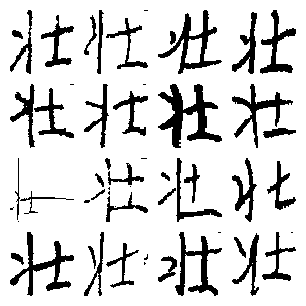 壮壮壮壮
壮壮壮壮
壮壮壮壮
壮壮壮壮